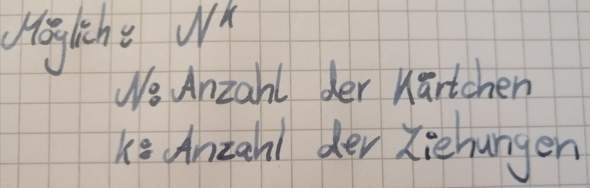 Möglich: N^k
N: Anzahl der Kärtchen
k: Anzahl der Ziehungen